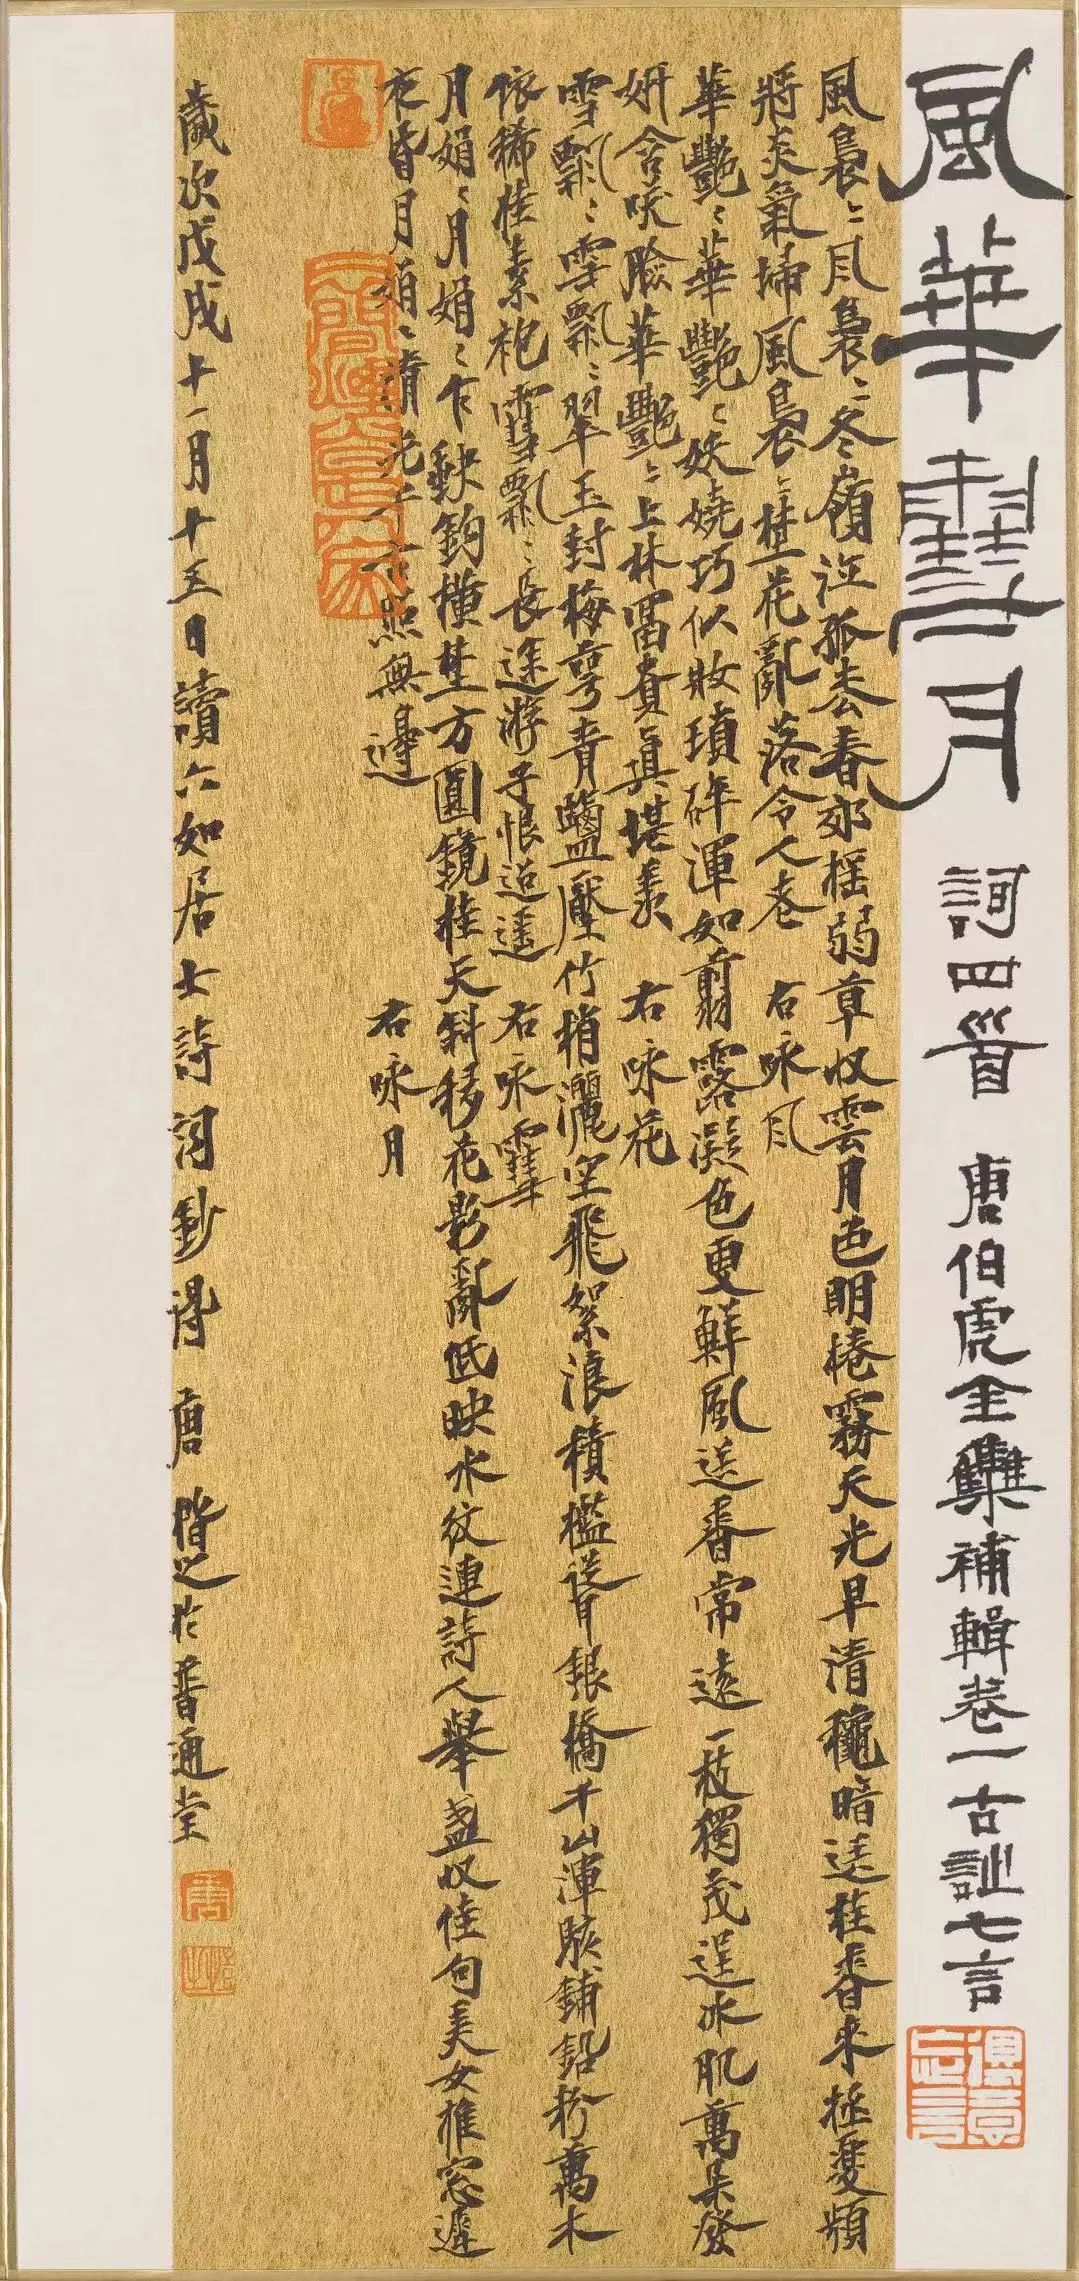 風華雪月 詞四首 唐伯虎全集補輯卷一古詩七言
得意忘言
風裊〻風裊〻冬嶺泣孤松春郊搖弱草收雲月色明捲霧天光早清秋暗送桂香來極夏頻
將炎氣掃風裊〻桂花亂落令人老 右咏風
華艷〻華艷〻妖嬈巧似妝瑣碎渾如翦露凝色更鮮風送香常遠一枝獨茂逞冰肌萬朵發
妍含咲臉華艷〻上林富貴真堪羨 右咏花
雪飄〻雪飄〻翠玉封梅萼青鹽壓竹梢灑空飛絮浪積檻聳銀橋千山渾駭鋪鉛粉萬木
依稀挂素袍雪飄〻長途游子恨迢遥 右咏雪
月娟〻月娟〻乍缺鉤橫野方圓鏡挂天斜移花影亂低映水紋連詩人舉盞收佳句美女推窗遲
夜眠月娟〻清光千古照無邊 右咏月
歲次戊戌十一月十五日讀六如居士詩詞鈔得 唐楷之於普通堂